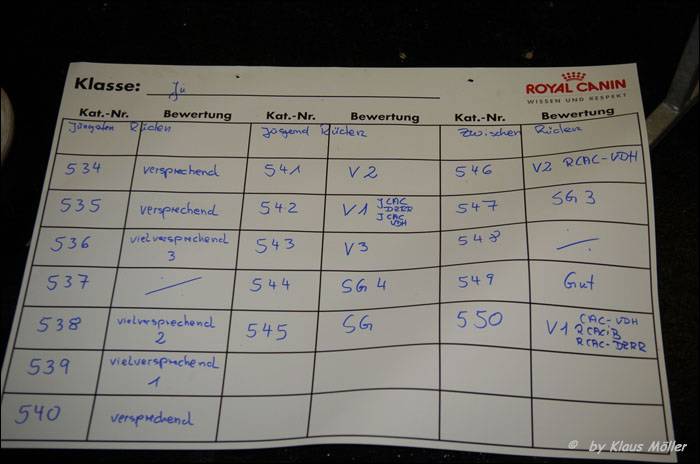 Klasse: Jü
ROYAL CANIN
WISSEN UND RESPEKT
Kat.-Nr. Bewertung Kat.-Nr. Bewertung Kat.-Nr. Bewertung
Jüngsten Rüden Jugend Rüden Zwischen Rüden
534 versprechend 541 V2 546 V2 RCAC-VDH
535 versprechend 542 V1 JCAC DZRR JCAC VDH 547 SG 3
536 vielversprechend 3 543 V3 548 /
537 / 544 SG 4 549 Gut
538 vielversprechend 2 545 SG 550 V1 CAC-VDH RCACiB RCAC-DZRR
539 vielversprechend 1
540 versprechend
© by Klaus Möller